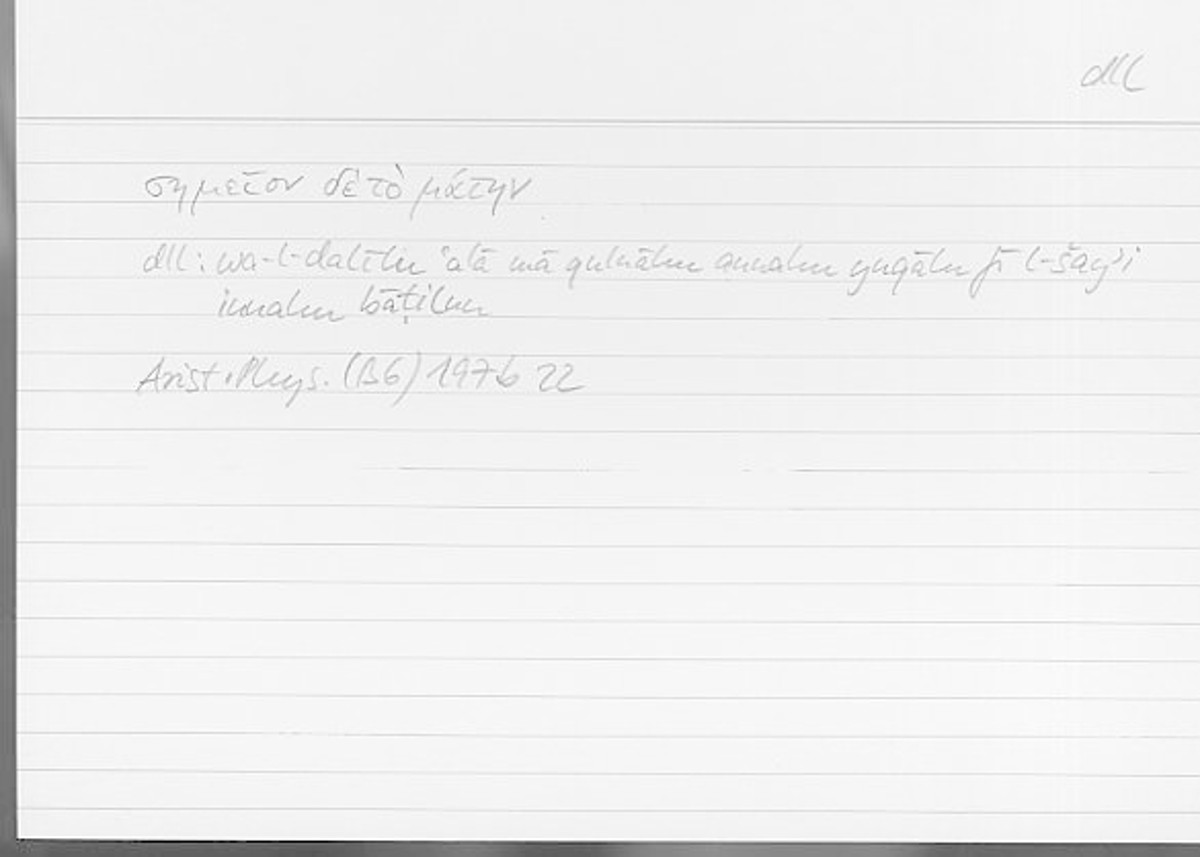 dll
σημεῖον δὲ τὸ μάτην
dll: wa-l-dalīlu ʿalā mā qulnāhu annahu yuqālu fī l-šayʾi
innahu bāṭilun
Arist. Phys. (B6) 197b 22